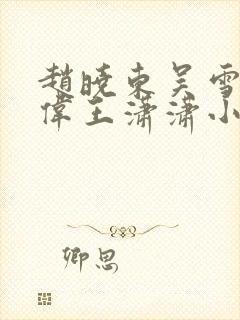 趙曉東吴雪
偉王潇潇小
卿思